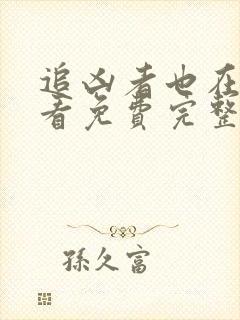 追凶者也在
看免费完整
孫久富